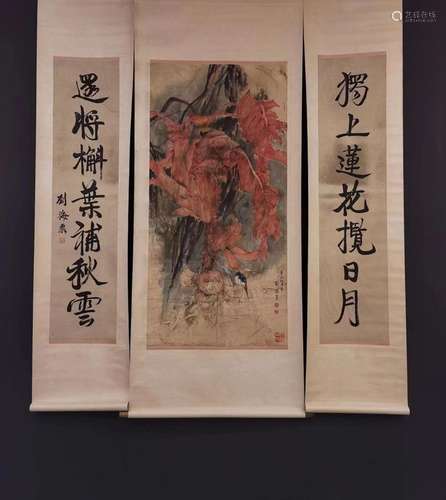 獨上蓮花攬日月
還將槲葉補秋雲
劉海粟
艺狐在线